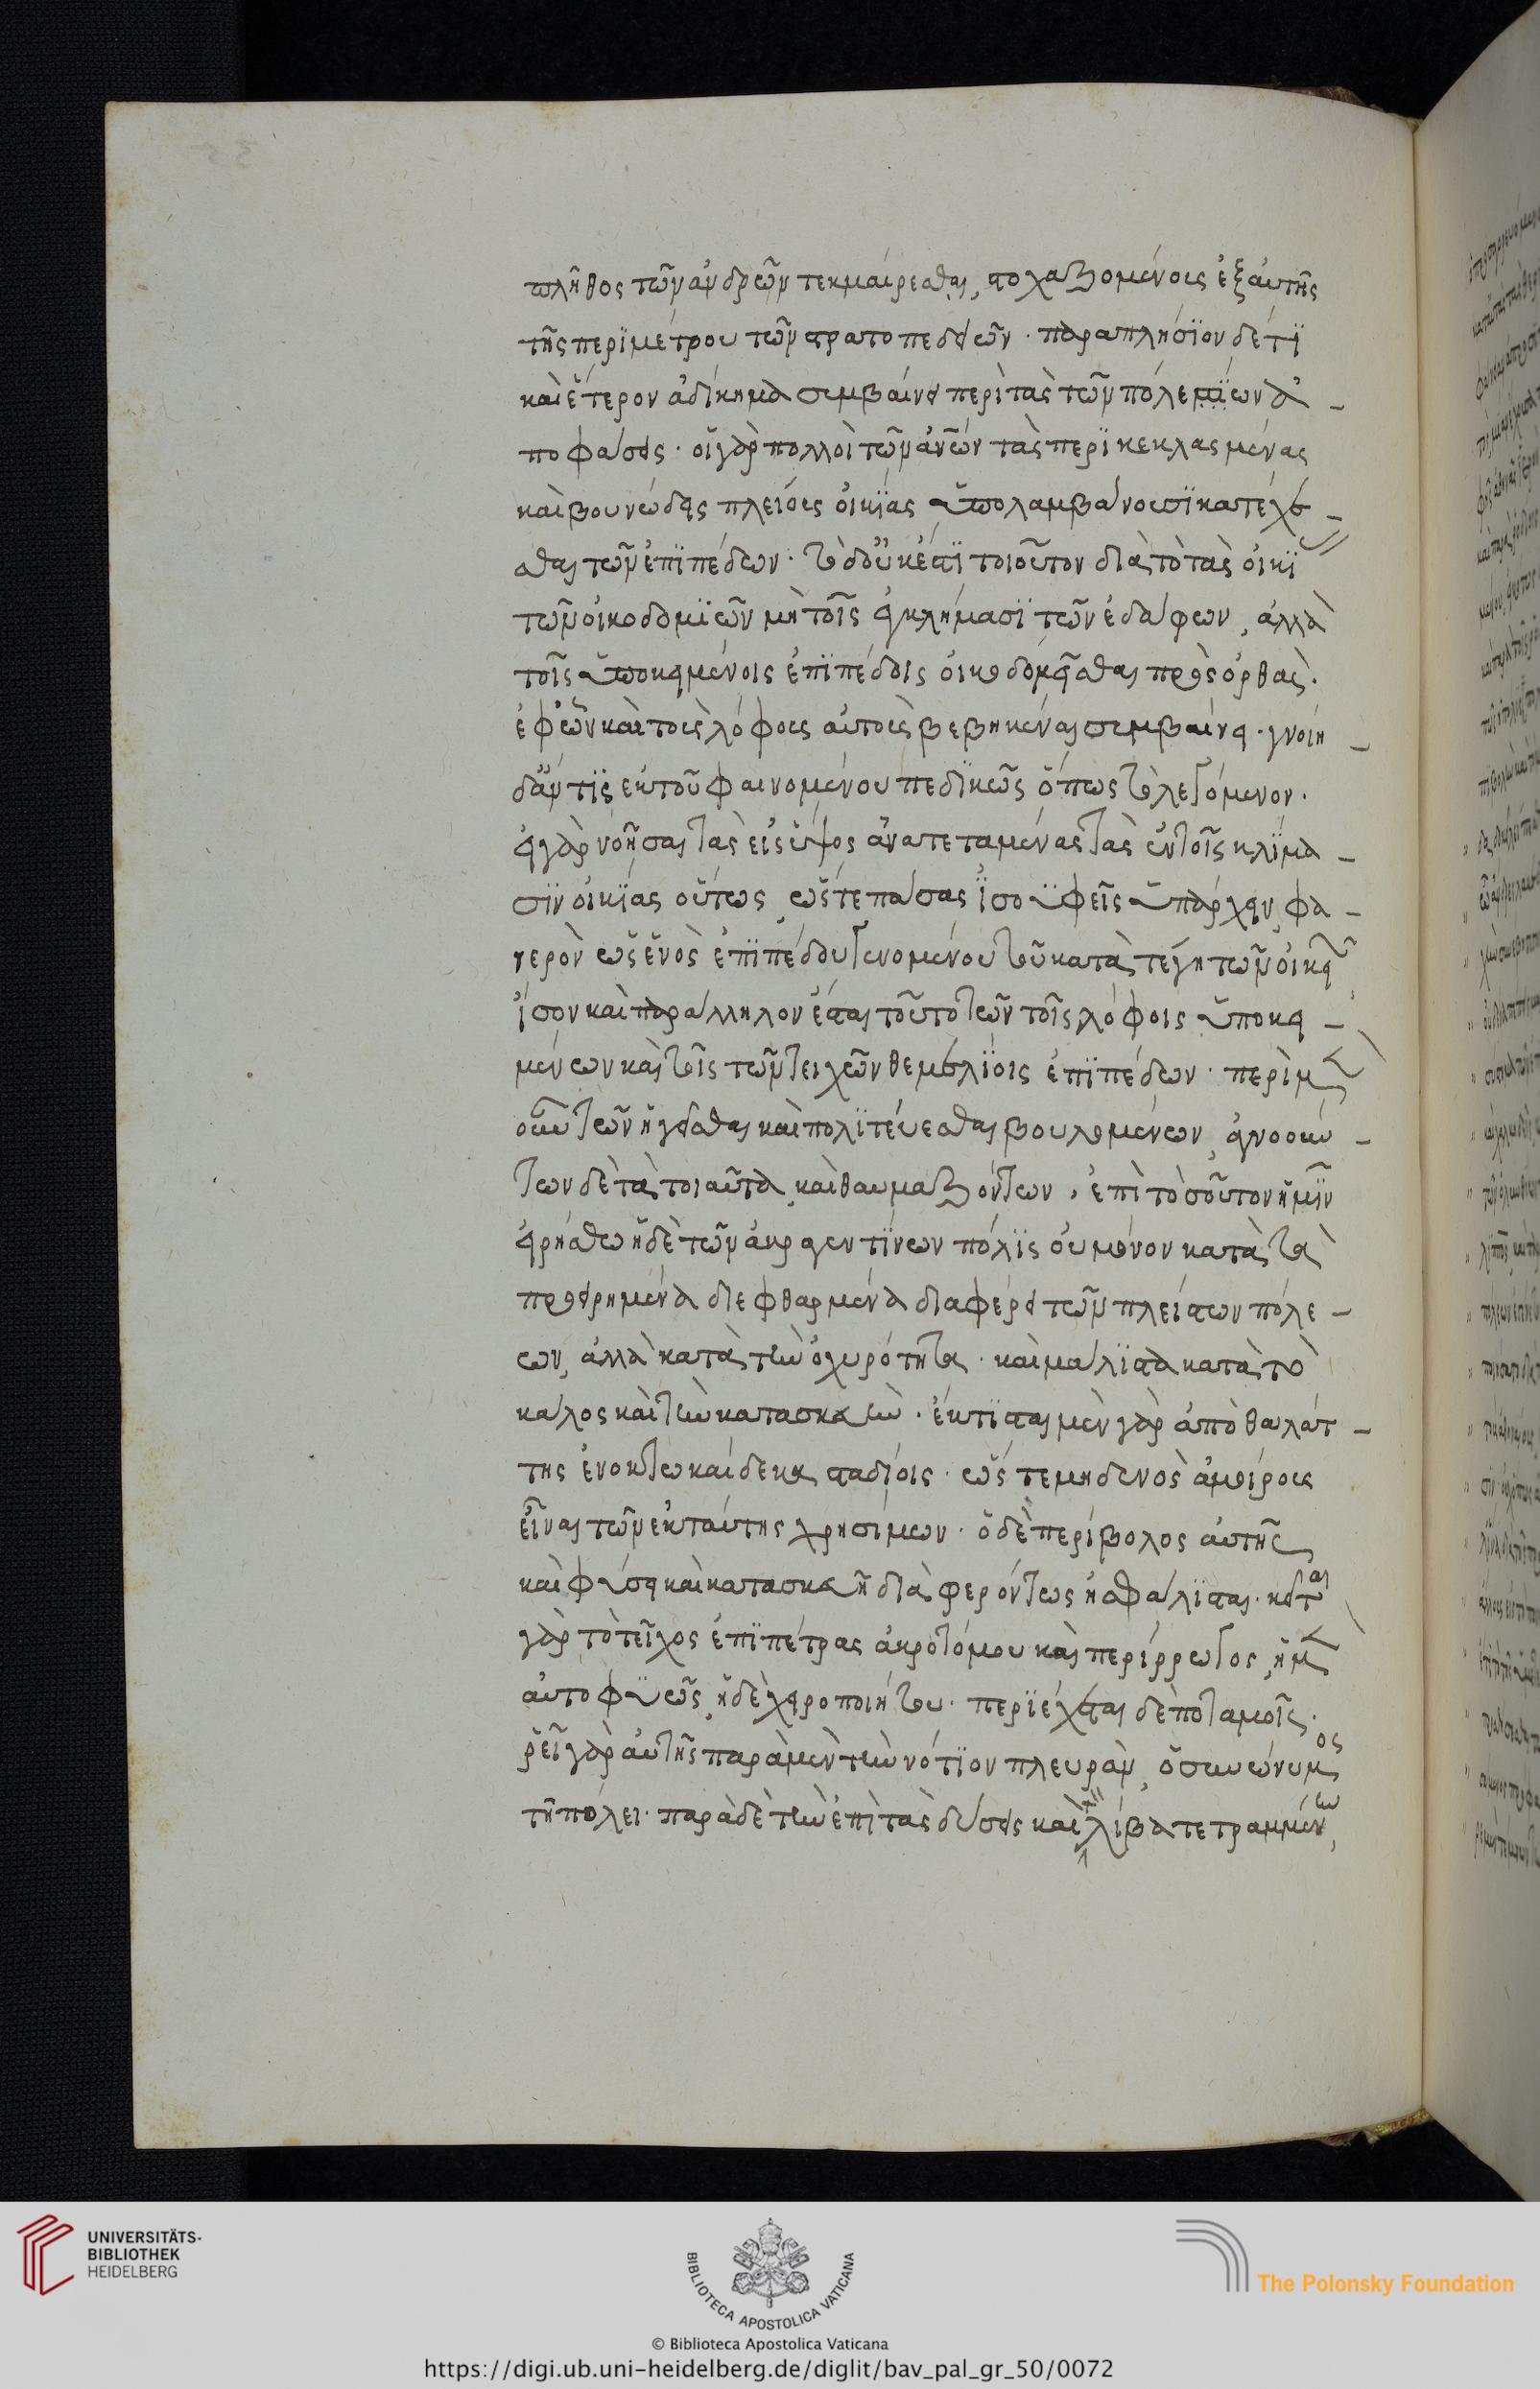 πλῆθος τῶν ἀνδρῶν τεκμαίρεσθαι, στοχαζομένους ἐξ αὐτῆς
τῆς περϊμέτρου τῶν στρατοπεδειῶν · παραπλήσϊον δέ τϊ
καὶ ἕτερον ἀδίκημα συμβαίνει περὶ τὰς τῶν πόλεμϊων ἀ –
ποφάσεις · οἱ γὰρ πολλοὶ τῶν ἀνῶν τὰς περϊκεκλασμένας
καὶ βουνώδεις πλείους οἰκϊας ὑπολαμβάνουσϊ κατέχε –
σθαι τῶν ἐπϊπέδων · τὸ δ' οὐκ ἔστϊ τοιοῦτον διὰ τὸ τὰς οἰκϊ
τῶν οἰκοδομϊῶν μὴ τοῖς ἐγκλήμασϊ τῶν ἐδάφων, ἀλλὰ
τοῖς ὑποκειμένοις ἐπϊπέδοις οἰκοδομεῖσθαι πρὸς ὀρθὰς ·
ἐφ' ὧν καὶ τοὺς λόφους αὐτοὺς βεβηκέναι συμβαίνει · γνοίη –
δ' ἄν τϊς ἐκ τοῦ φαινομένου πεδϊκῶς ὅπως τὸ λεγόμενον ·
εἰ γὰρ νοῆσαι τὰς εἰς ὕψος ἀνατεταμένας τὰς ἐν τοῖς κλϊμα –
σϊν οἰκϊας οὕτως, ὥστε πάσας ἰσοϋφεῖς ὑπάρχειν, φα –
νερὸν ὡς ἑνὸς ἐπϊπέδου γενομένου τοῦ κατὰ τέγη τῶν οἰκει
ἴσον καὶ παράλληλον ἔσται τοῦτο τῶν τοῖς λόφοις ὑποκει –
μένων καὶ τοῖς τῶν τειχῶν θεμελϊοις ἐπϊπέδων · περὶ μ
οὖν τῶν ἡγεῖσθαι καὶ πολϊτεύεσθαι βουλομένων, ἀγνοούν –
των δὲ τὰ τοιαῦτα, καὶ θαυμαζόντων, ἐπὶ τὸσοῦτον ἡμῖν
εἰρήσθω ἡ δὲ τῶν ἀκραγεντϊνων πόλϊς οὐ μόνον κατὰ τὰ
προειρημένα διεφθαρμένα διαφέρει τῶν πλείστων πόλε –
ων, ἀλλὰ κατὰ τὴν ὀχυρότητα · καὶ μάλϊστα κατὰ τὸ
κάλος καὶ τὴν κατασκευὴν · ἔκτϊσται μὲν γὰρ ἀπὸ θαλάτ –
της ἐν ὀκτωκαίδεκα σταδίοις · ὥστε μηδενὸς ἀμοίρους
εἶναι τῶν ἐκ ταύτης χρησίμων · ὁ δὲ περίβολος αὐτῆς
καὶ φύσει καὶ κατασκευῆ διαφερόντως ἠσφάλϊσται · κεῖται
γὰρ τὸ τεῖχος ἐπϊ πέτρας ἀκροτόμου καὶ περιρρῶγος, ἧ μ
αὐτοφϋῶς, ἧ δὲ χειροποιήτου · περϊέχεται δὲ ποταμοῖς ·
ῥεῖ γὰρ αὐτῆς παρὰ μὲν τὴν νότϊον πλευρὰν, ὁ συνώνυμος
τῆ πόλει · παρὰ δὲ τὴν ἐπὶ τὰς δύσεις καὶ λίβα τετραμμένων,
UNIVERSITÄTS-
BIBLIOTHEK
HEIDELBERG
BIBLIOTECA APOSTOLICA VATICANA
The Polonsky Foundation
© Biblioteca Apostolica Vaticana
https://digi.ub.uni-heidelberg.de/diglit/bav_pal_gr_50/0072